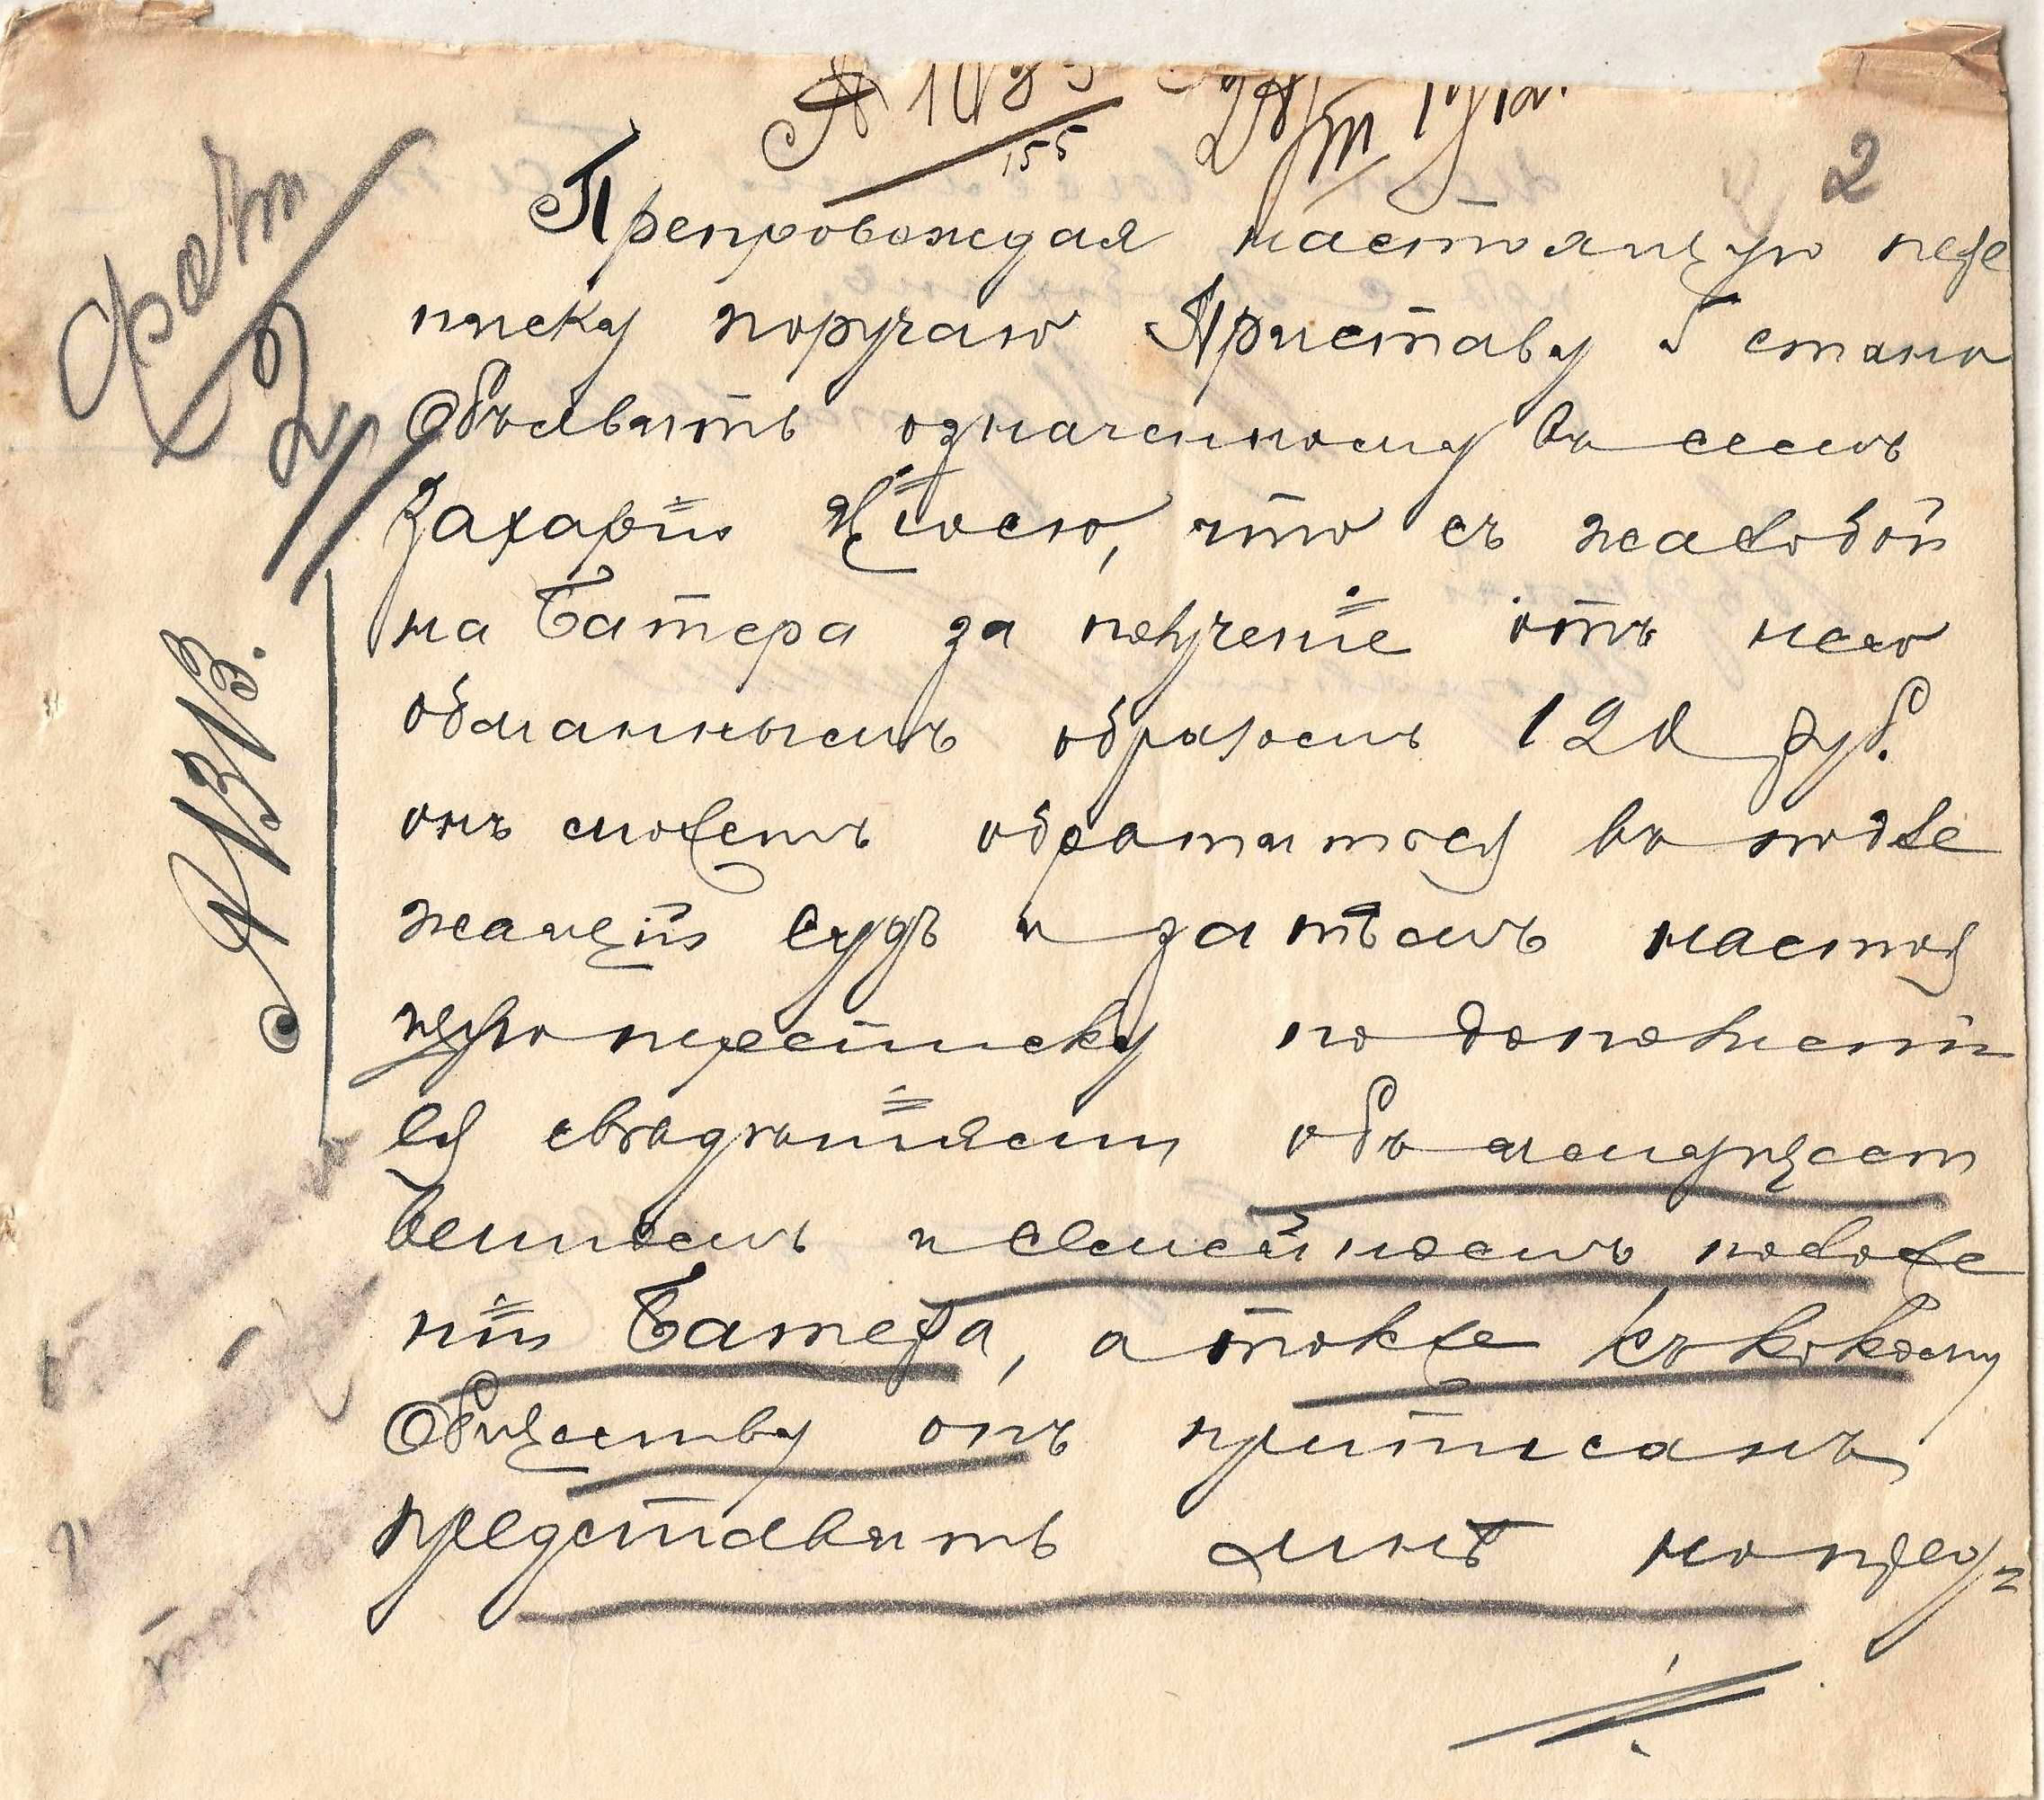 155
2
Препровождая настоящую пере
писку поручаю Приставу 5 стана
Объявить означенному въ семъ
Захарію Цюсю, что съ жалобой
на Батера за полученіе отъ него
обманнымъ образомъ 120 руб.
онъ можетъ обратиться въ подле
жащій судъ и затѣмъ настоя
щую переписку по дополненіи
ея свѣдѣніями объ имущест
венномъ и семейномъ положе
ніи Батера, а также къ какому
Обществу онъ приписанъ
представить мнѣ